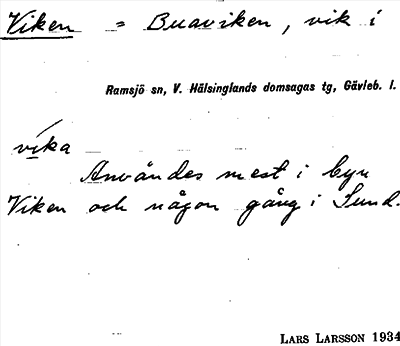 Viken = Buaviken, vik i
Ramsjö sn, V. Hälsinglands domsagas tg, Gävleb. l.
víka
Användes mest i byn
Viken och någon gång i Sund.
LARS LARSSON 1934